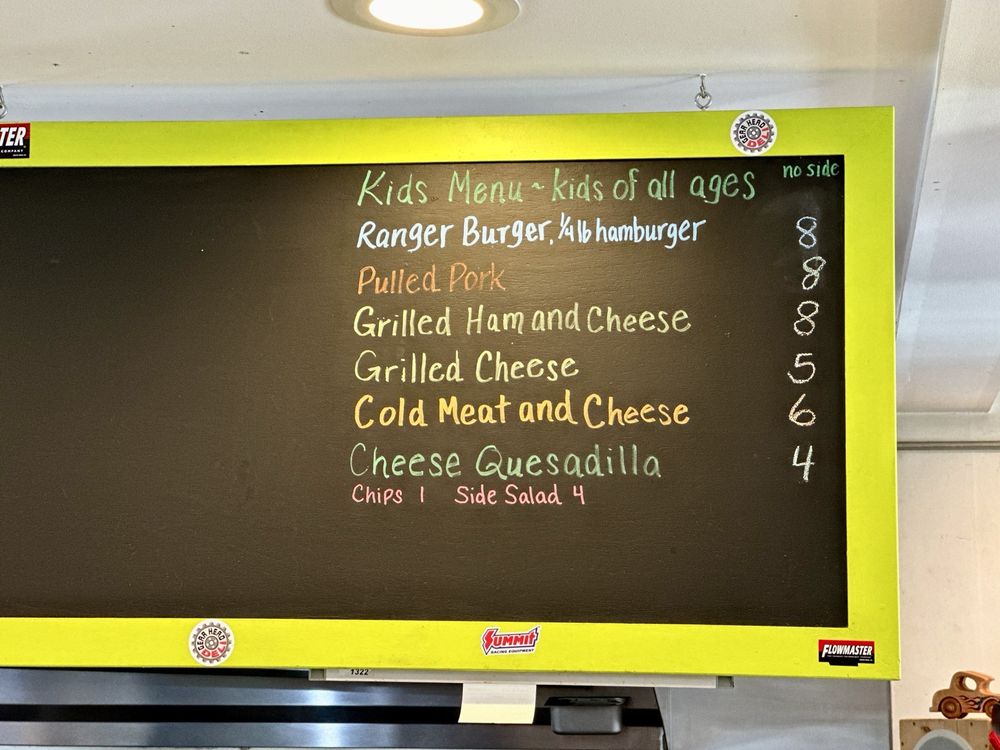 TER
COMPANY
GEAR HEAD DELI
no side
Kids Menu ~ kids of all ages
Ranger Burger, 1/4 lb hamburger 8
Pulled Pork 8
Grilled Ham and Cheese 8
Grilled Cheese 5
Cold Meat and Cheese 6
Cheese Quesadilla 4
Chips 1 Side Salad 4
GEAR HEAD DELI
SUMMIT
RACING EQUIPMENT
FLOWMASTER
1322